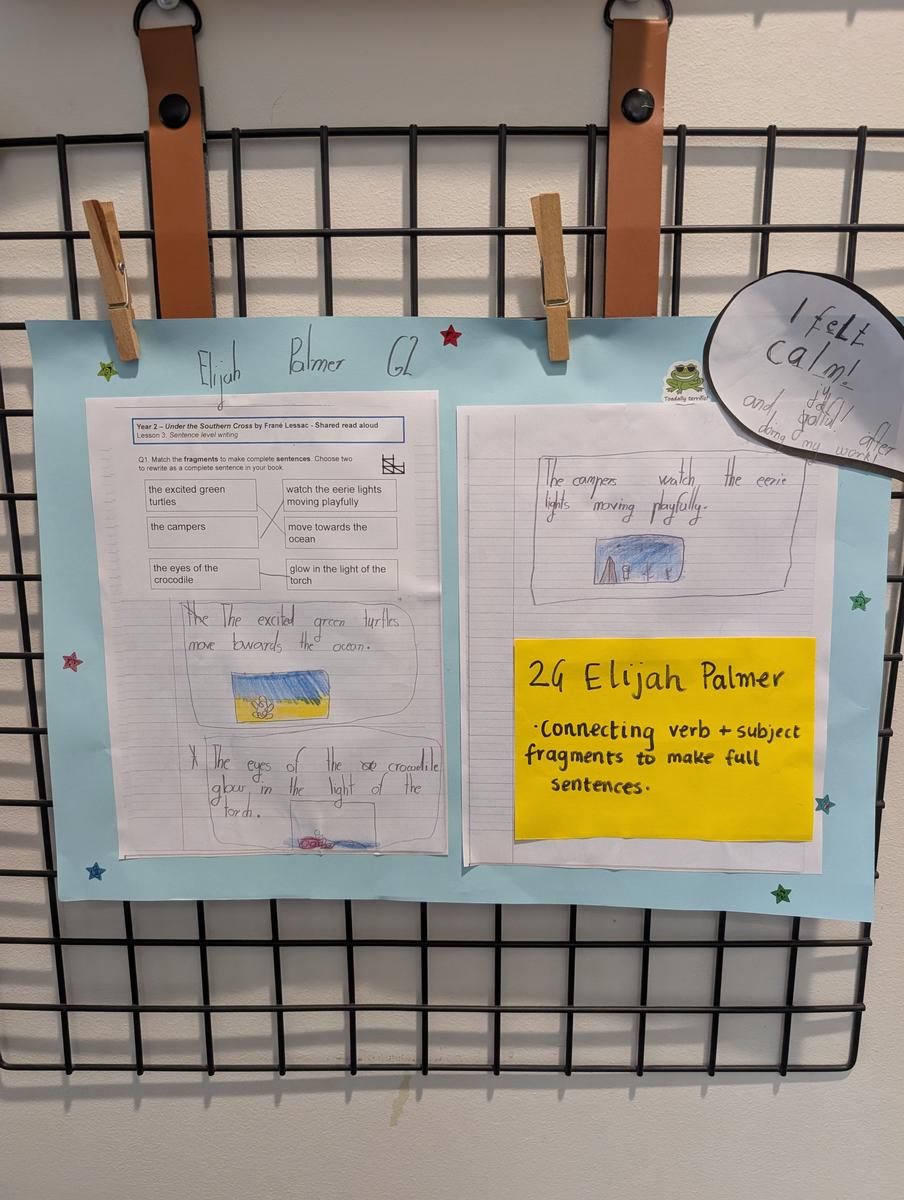 Elijah Palmer G2
Year 2 – Under the Southern Cross by Frané Lessac - Shared read aloud
Lesson 3: Sentence level writing
Q1. Match the fragments to make complete sentences. Choose two
to rewrite as a complete sentence in your book.
the excited green
turtles
watch the eerie lights
moving playfully
the campers
move towards the
ocean
the eyes of the
crocodile
glow in the light of the
torch
The excited green turtles
move towards the ocean.
The eyes of the crocodile
glow in the light of the
torch.
I felt
calm!
and
after
doing my work
Toadally terrific!
The campers watch the eerie
lights moving playfully.
2G Elijah Palmer
·Connecting verb + subject
fragments to make full
sentences.